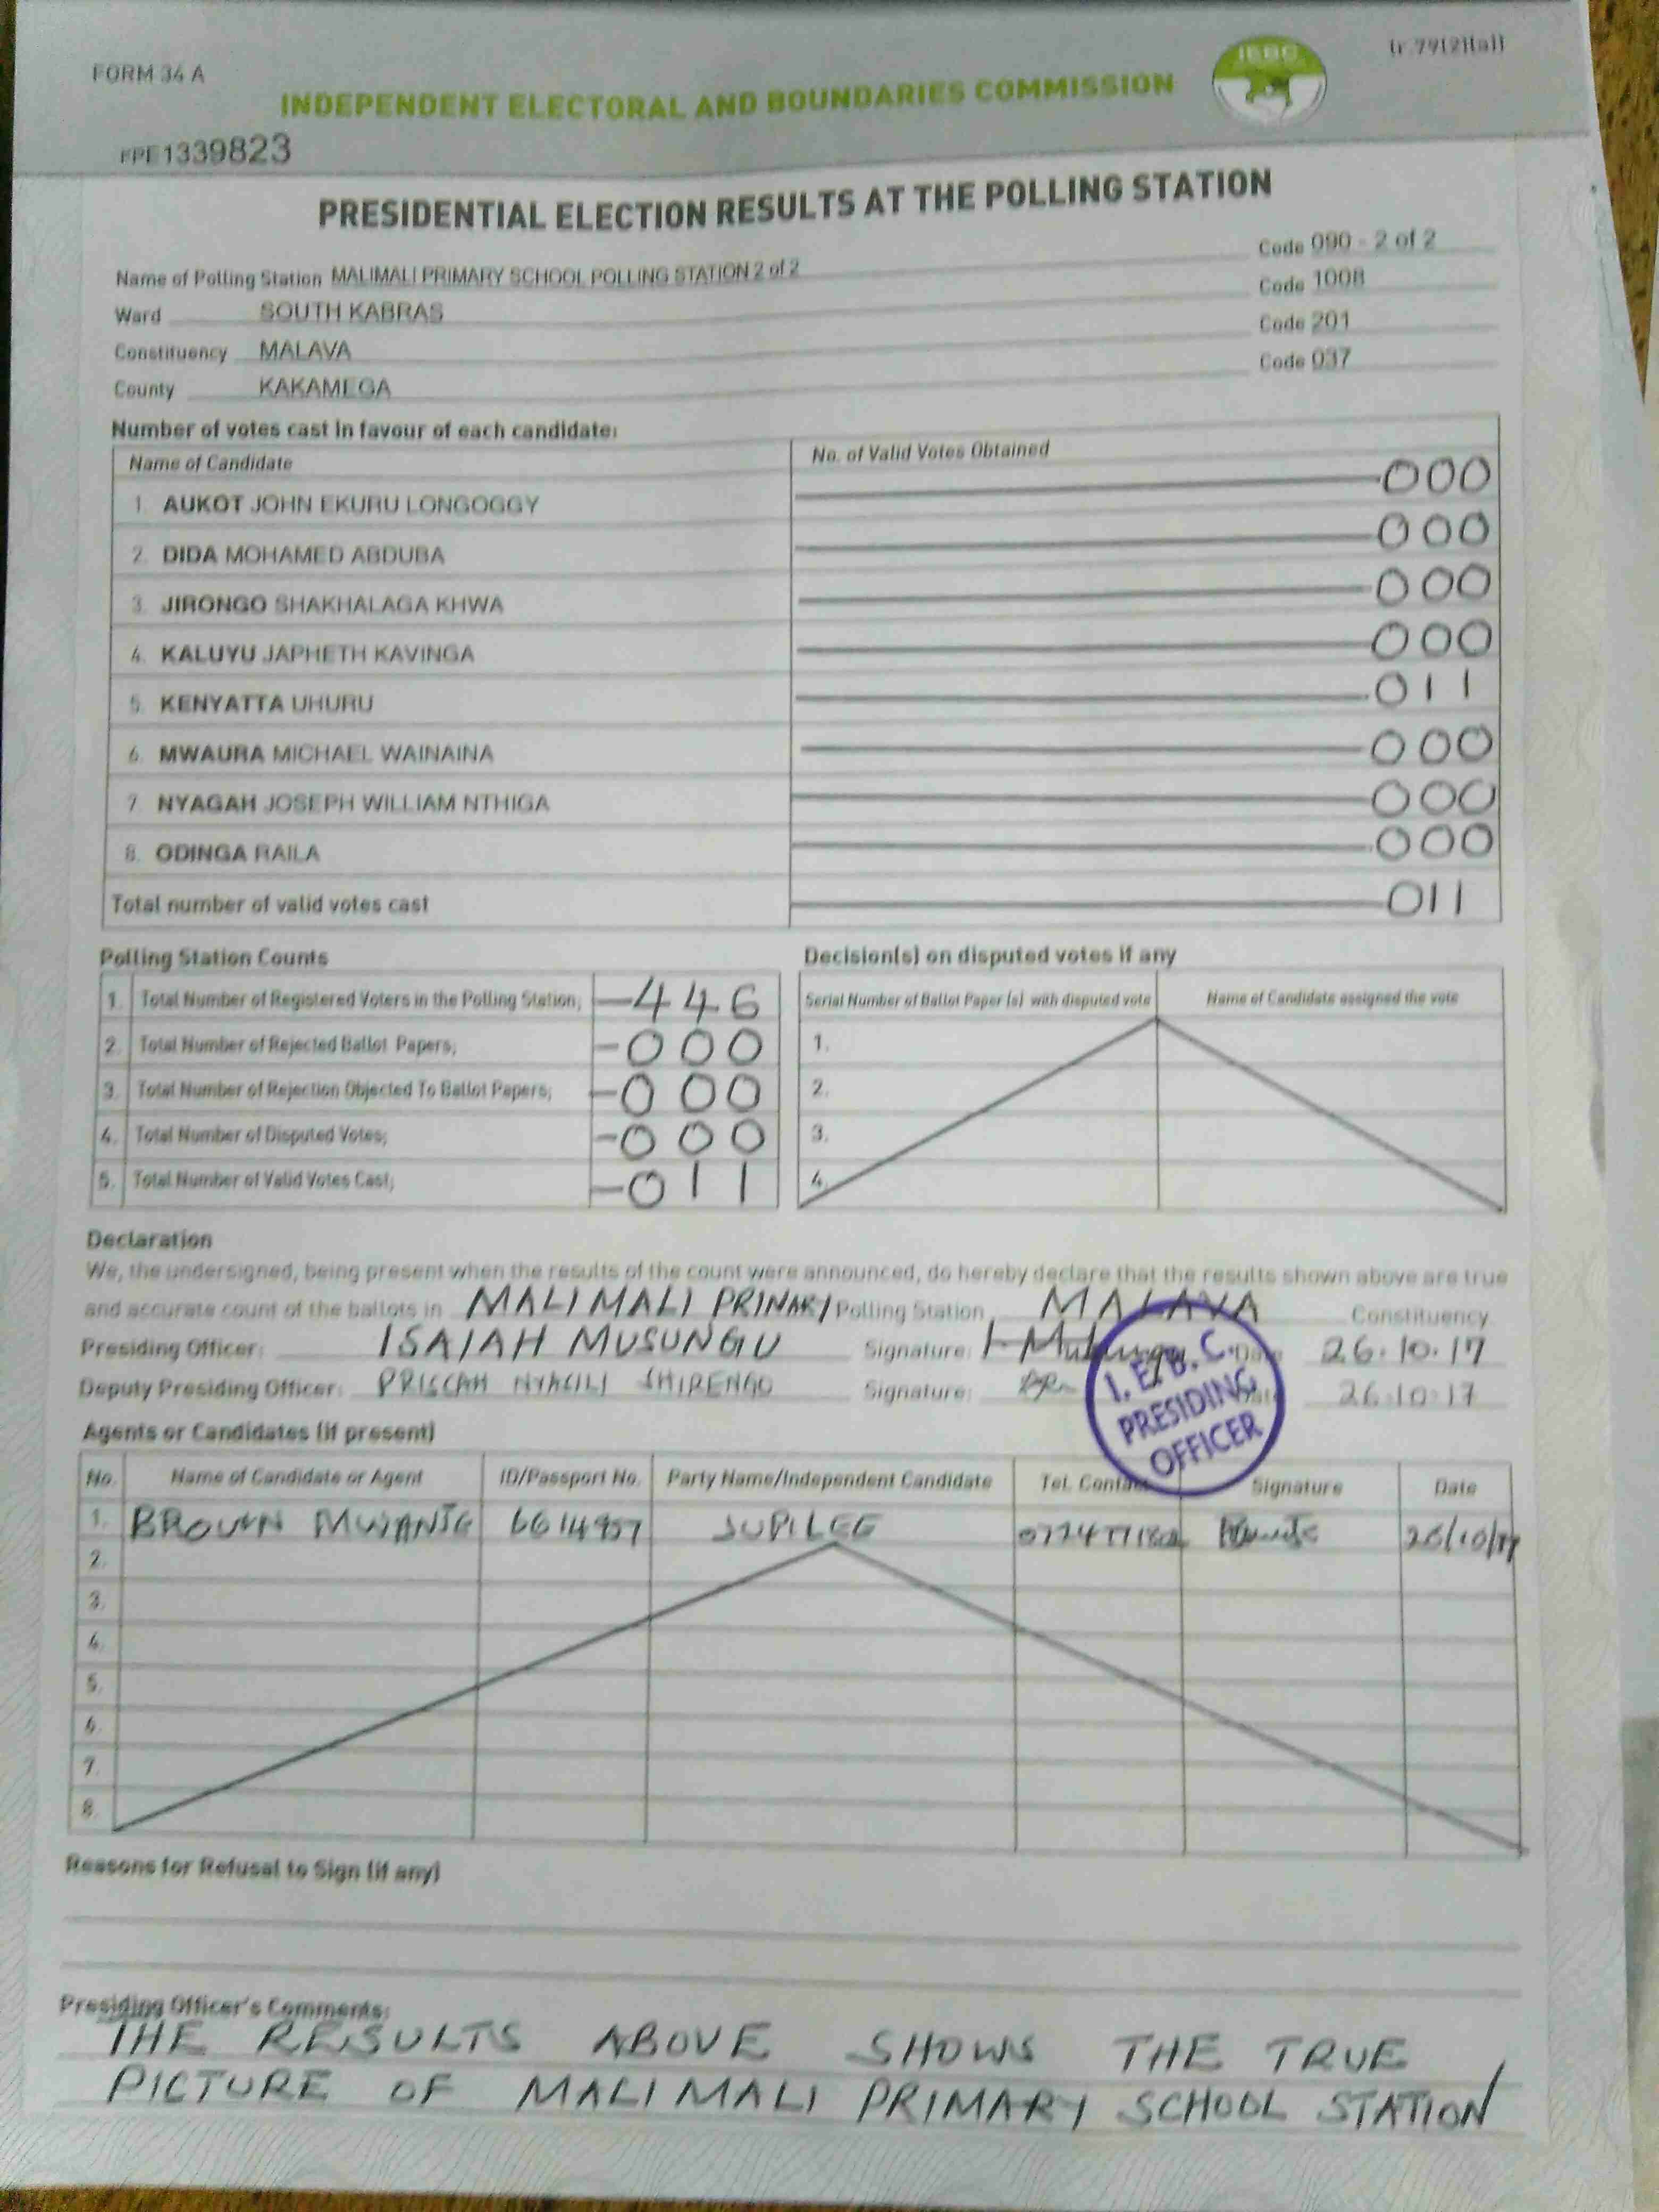 FORM 34 A
(r.79(2)(a))
IEBC
INDEPENDENT ELECTORAL AND BOUNDARIES COMMISSION
FPE1339823
PRESIDENTIAL ELECTION RESULTS AT THE POLLING STATION
Name of Polling Station MALIMALI PRIMARY SCHOOL POLLING STATION 2 of 2 Code 090 - 2 of 2
Ward SOUTH KABRAS Code 1008
Constituency MALAVA Code 201
County KAKAMEGA Code 037
Number of votes cast in favour of each candidate:
Name of Candidate No. of Valid Votes Obtained
1. AUKOT JOHN EKURU LONGOGGY 000
2. DIDA MOHAMED ABDUBA 000
3. JIRONGO SHAKHALAGA KHWA 000
4. KALUYU JAPHETH KAVINGA 000
5. KENYATTA UHURU 011
6. MWAURA MICHAEL WAINAINA 000
7. NYAGAH JOSEPH WILLIAM NTHIGA 000
8. ODINGA RAILA 000
Total number of valid votes cast 011
Polling Station Counts
1. Total Number of Registered Voters in the Polling Station; 446
2. Total Number of Rejected Ballot Papers; 000
3. Total Number of Rejection Objected To Ballot Papers; 000
4. Total Number of Disputed Votes; 000
5. Total Number of Valid Votes Cast; 011
Decision(s) on disputed votes if any
Serial Number of Ballot Paper (s) with disputed vote Name of Candidate assigned the vote
1.
2.
3.
4.
Declaration
We, the undersigned, being present when the results of the count were announced, do hereby declare that the results shown above are true
and accurate count of the ballots in MALIMALI PRINARY Polling Station MALAVA Constituency
Presiding Officer: ISAIAH MUSUNGU Signature: Date 26.10.17
Deputy Presiding Officer: PRISCAH NYAGILI SHIRENGO Signature: Date 26.10.17
I. E. B. C.
PRESIDING
OFFICER
Agents or Candidates (if present)
No. Name of Candidate or Agent ID/Passport No. Party Name/Independent Candidate Tel. Contact Signature Date
1. BROWN 6614957 JUPILEE 26/10/17
2.
3.
4.
5.
6.
7.
8.
Reasons for Refusal to Sign (if any)
Presiding Officer's Comments:
THE RESULTS ABOVE SHOWS THE TRUE
PICTURE OF MALIMALI PRIMARY SCHOOL STATION